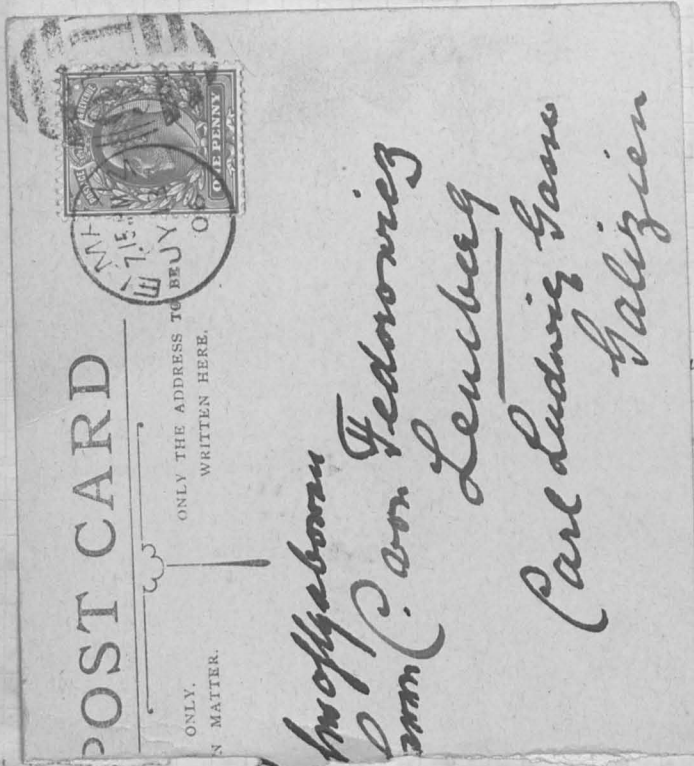 POST CARD
ONLY.
N MATTER.
ONLY THE ADDRESS TO BE
WRITTEN HERE.
ONE PENNY
7.15 PM
JY
06
C. von Fedorowicz
Lemberg
Carl Ludwig Gasse
Galizien